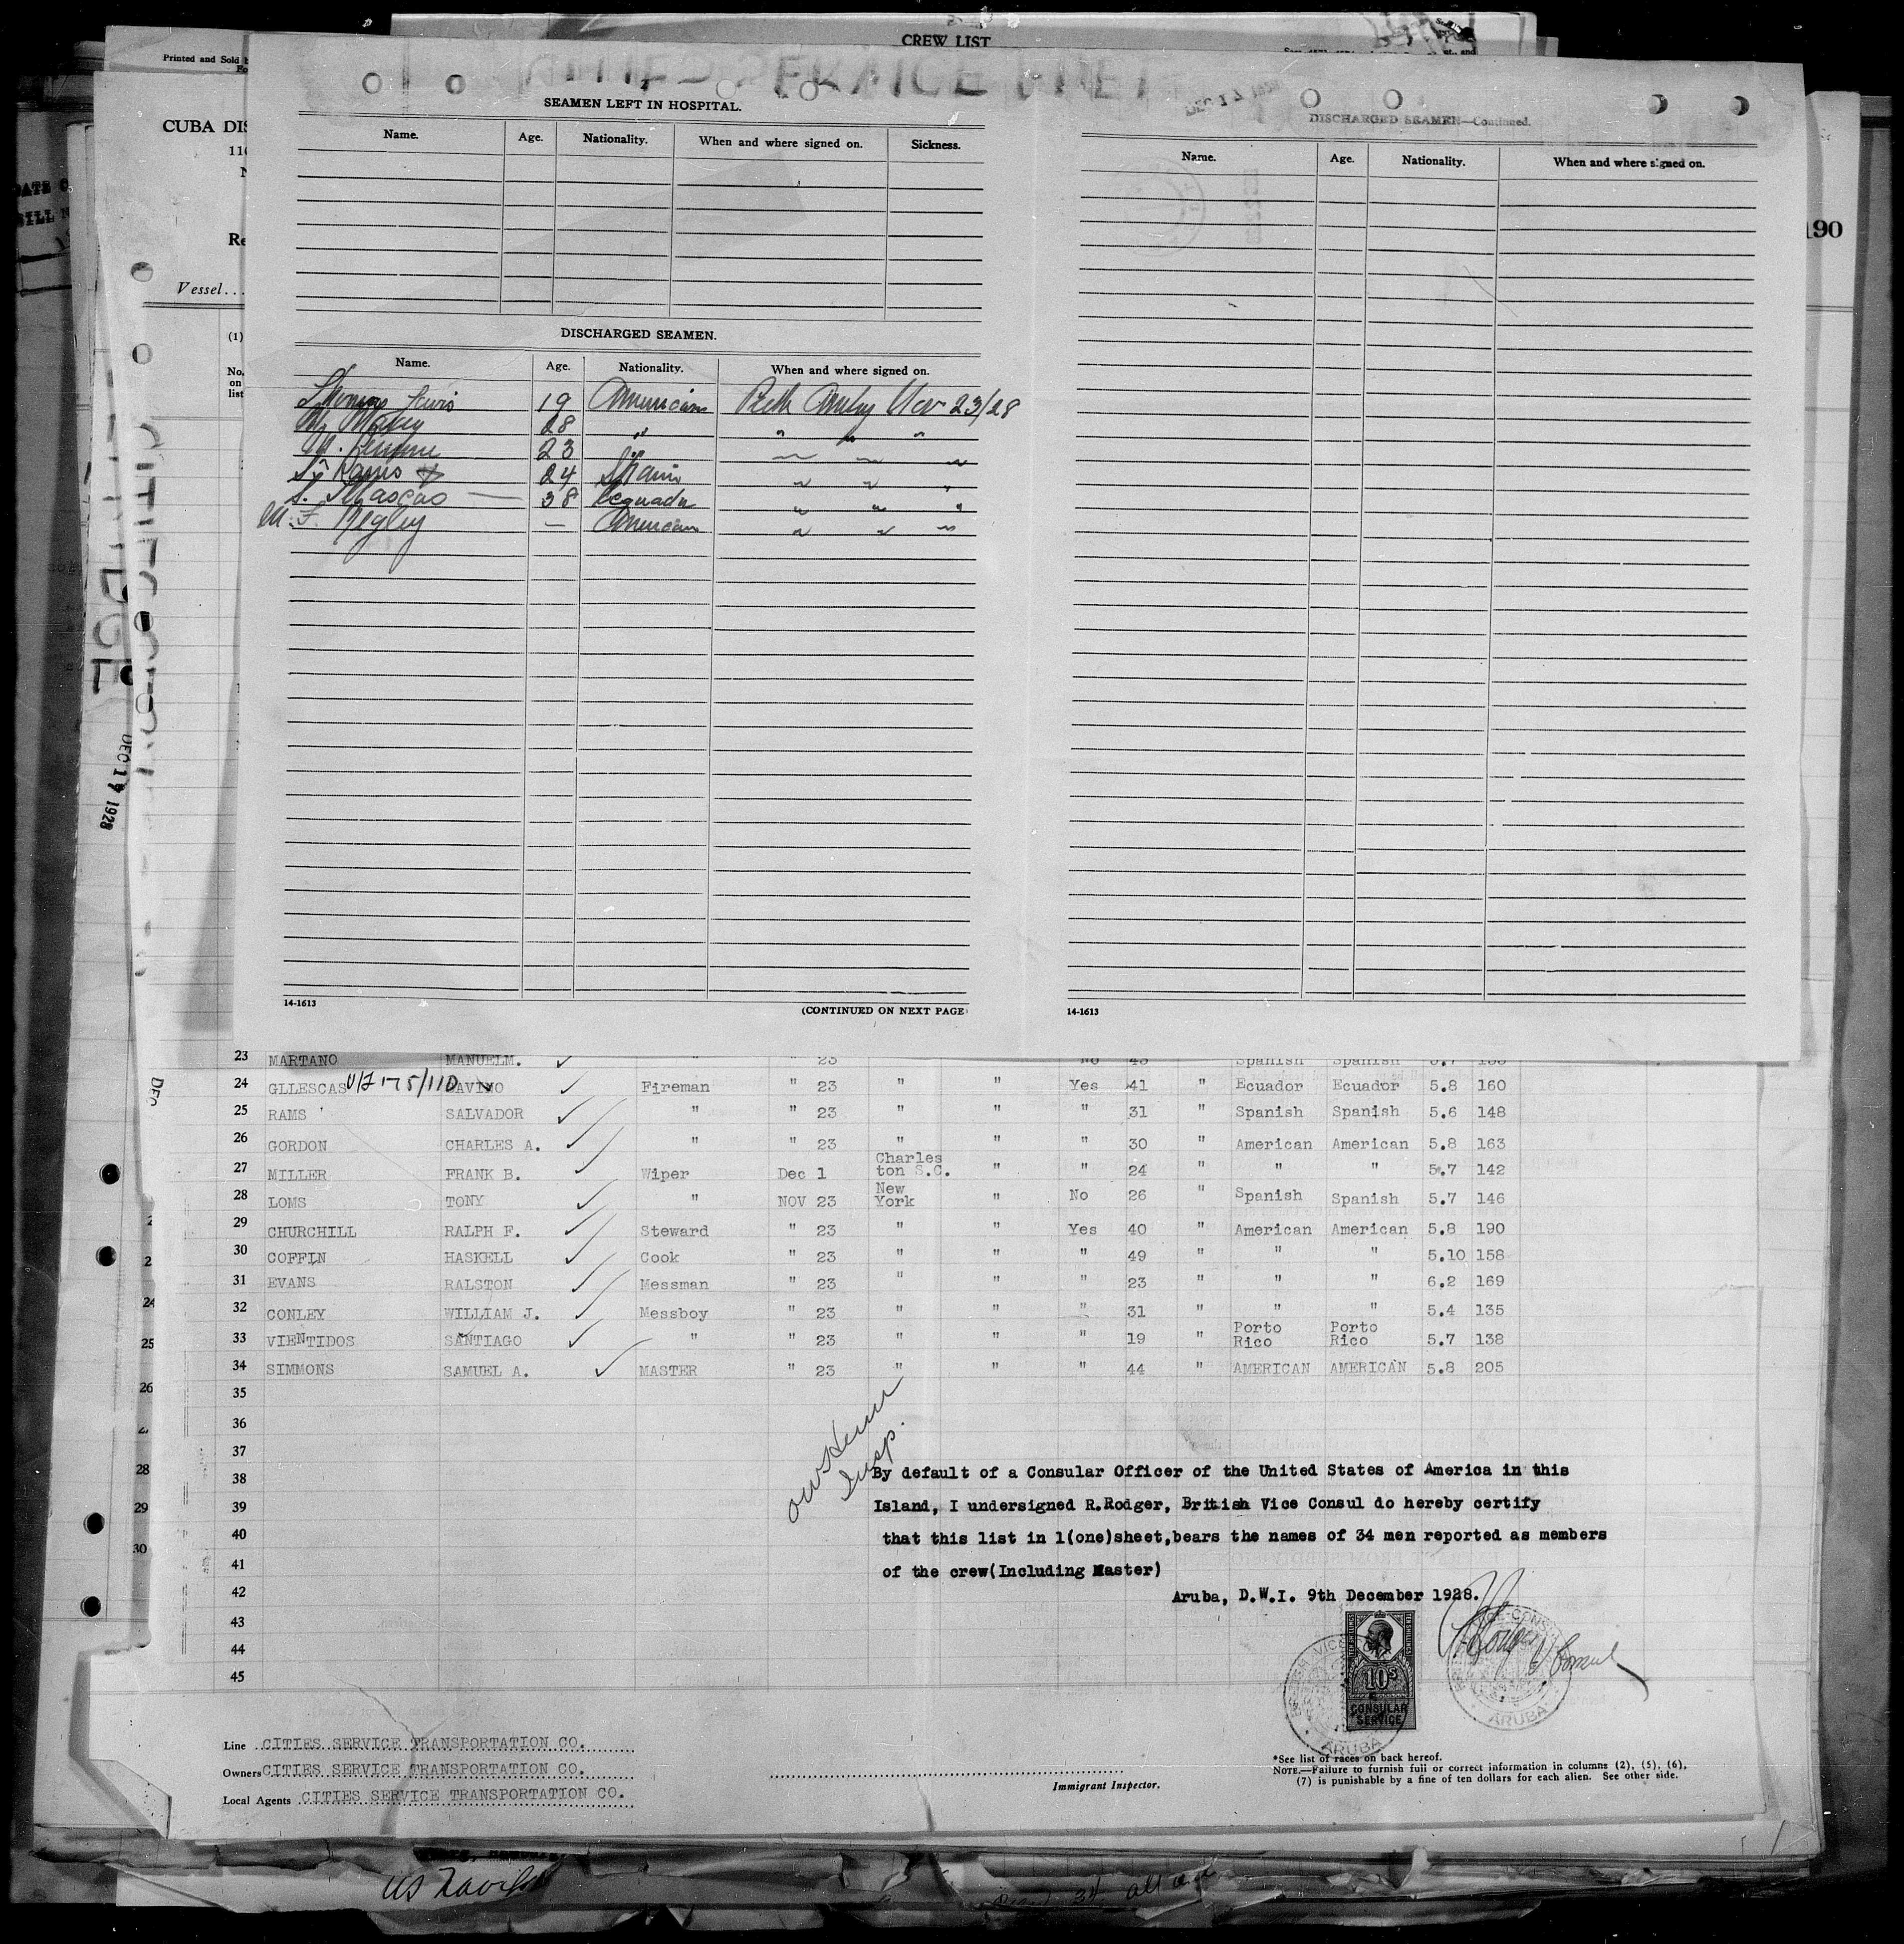 CREW LIST
Printed and Sold
CUBA DIS
Vessel...
(1)
No.
on
list
190
DEC 17 1928
SEAMEN LEFT IN HOSPITAL.
Name. Age. Nationality. When and where signed on. Sickness.
DISCHARGED SEAMEN.
Name. Age. Nationality. When and where signed on.
Thomas Lewis 19 American Perth Amboy Nov 23/28
28 " " " "
23 " " " "
24 Spain " " "
38 " " "
M. F. Negley — American " " "
14-1613 (CONTINUED ON NEXT PAGE)
DISCHARGED SEAMEN—Continued.
Name. Age. Nationality. When and where signed on.
14-1613
23 MARTANO MANUELM. " 23 No 43 Spanish Spanish
24 GLLESCAS V/I 175/110 " 23 " " Yes 41 " Ecuador Ecuador 5.8 160
25 RAMS SALVADOR " " 23 " " " 31 " Spanish Spanish 5.6 148
26 GORDON CHARLES A. " " 23 " " " 30 " American American 5.8 163
27 MILLER FRANK B. Wiper Dec 1 Charleston S.C. " " 24 " " " 5.7 142
28 LOMS TONY " NOV 23 New York " No 26 " Spanish Spanish 5.7 146
29 CHURCHILL RALPH F. Steward " 23 " " Yes 40 " American American 5.8 190
30 COFFIN HASKELL Cook " 23 " " " 49 " " " 5.10 158
31 EVANS RALSTON Messman " 23 " " " 23 " " " 6.2 169
32 CONLEY WILLIAM J. Messboy " 23 " " " 31 " " " 5.4 135
33 VIENTIDOS SANTIAGO " " 23 " " " 19 " Porto Rico Porto Rico 5.7 138
34 SIMMONS SAMUEL A. MASTER " 23 " " " 44 " AMERICAN AMERICAN 5.8 205
35
36
37
38
39
40
41
42
43
44
45
Insp.
By default of a Consular Officer of the United States of America in this
Island, I undersigned R.Rodger, British Vice Consul do hereby certify
that this list in 1(one)sheet,bears the names of 34 men reported as members
of the crew(Including Master)
Aruba, D.W.I. 9th December 1928.
10s
CONSULAR
SERVICE
ARUBA
ARUBA
Line CITIES SERVICE TRANSPORTATION CO.
Owners CITIES SERVICE TRANSPORTATION CO.
Local Agents CITIES SERVICE TRANSPORTATION CO.
Immigrant Inspector.
*See list of races on back hereof.
NOTE.—Failure to furnish full or correct information in columns (2), (5), (6),
(7) is punishable by a fine of ten dollars for each alien. See other side.